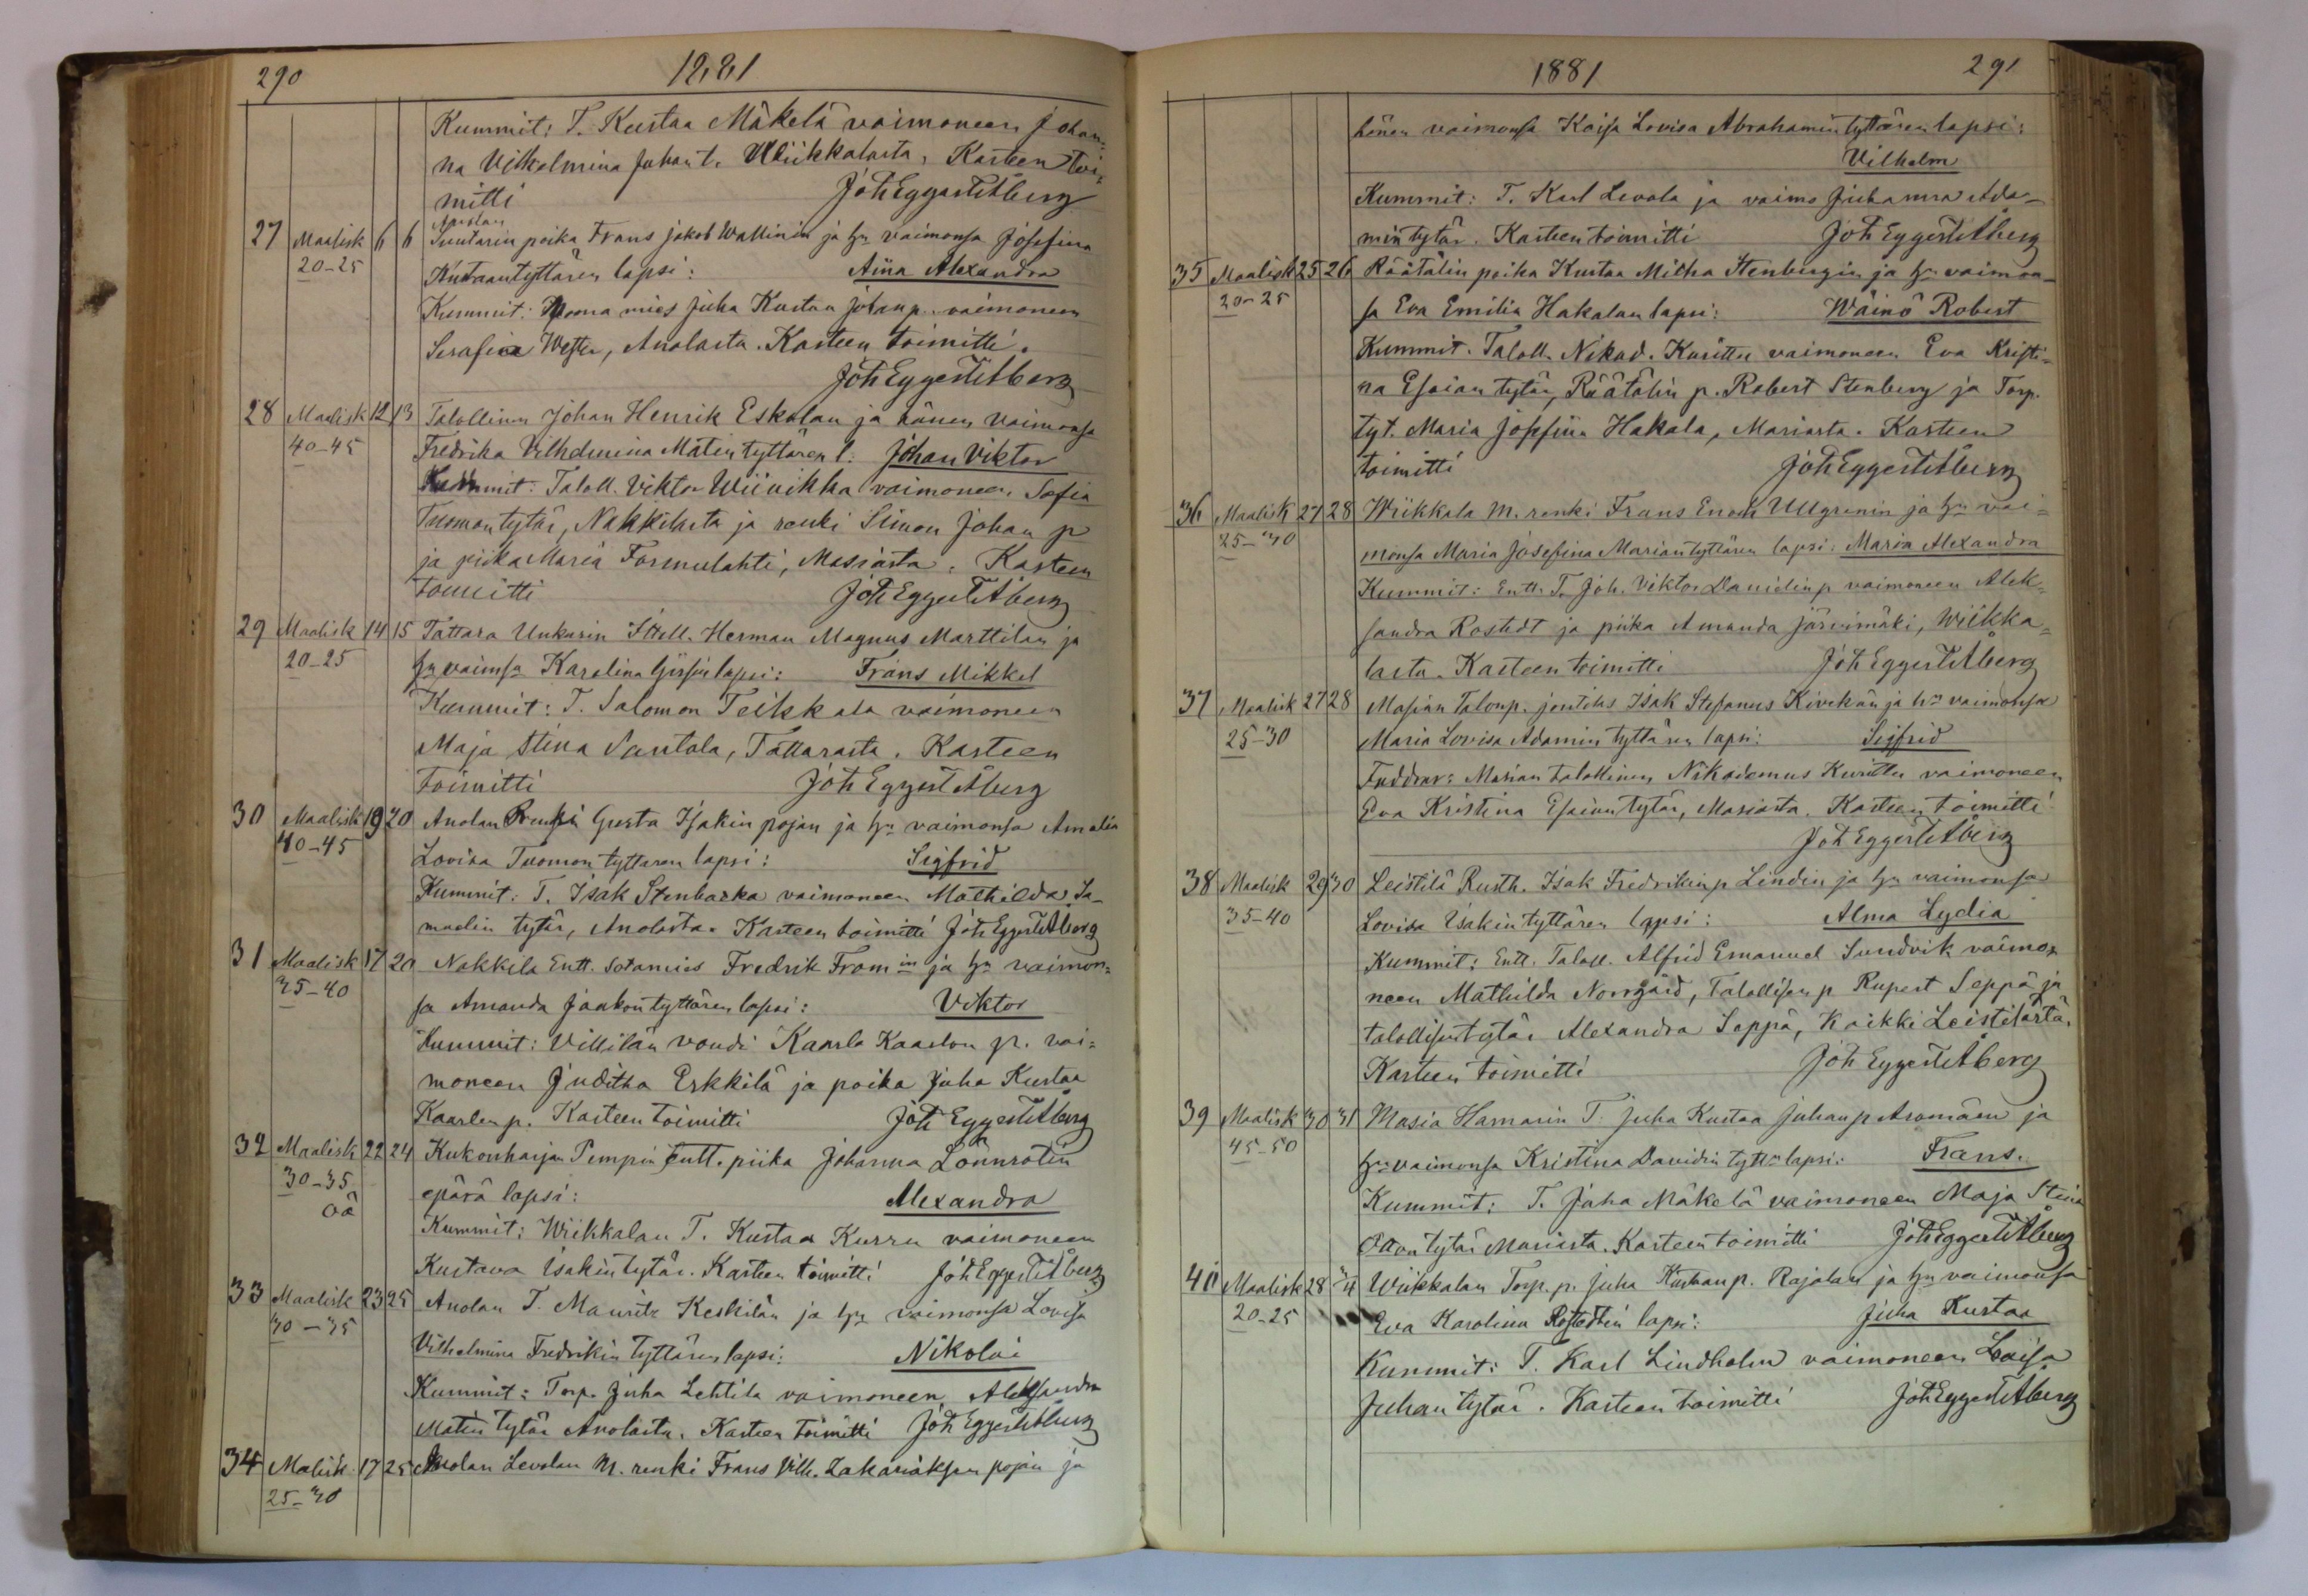 290
1881
Kummit: T. Kustaa Mäkelä vaimoneen Johan-
na Vilhelmina Juhan t. Wiikkalasta, Kasteen toi-
mitti Joh Eggert Åberg
27 Maalisk 6 6 Suutarin poika Frans Jakob Wallinin ja hn vaimonsa Josefina
20-25 Kustaantyttären lapsi: Aina Alexandra
Kummit: mies Juha Kustaa Johan p. vaimoneen
Serafia Wester, Anolasta. Kasteen toimitti.
Joh Eggert Åberg
28 Maalisk 12 13 Talollinen Johan Henrik Eskolan ja hänen vaimonsa
40-45 Fredrika Vilhelmina Matintyttären l: Johan Viktor
Kummit: Taloll. Viktor Wiivikka vaimoneen Sofia
Tuomontytär, Nakkilasta ja renki Simon Johan p
ja piika Maria Formulahti, Masiasta. Kasteen
toimitti Joh Eggert Åberg
29 Maalisk 14 15 Tattara Unkarin Itell. Herman Magnus Marttilan ja
20-25 hn vaimsa Karolina lapsi: Frans Mikkel
Kummit: T. Salomon Teikkala vaimoneen
Maja Stina Santala, Tattarasta. Kasteen
toimitti Joh Eggert Åberg
30 Maalisk 19 20 Anolan Gusta Isakin pojan ja hn vaimonsa Amalia
40-45 Lovisa Tuomontyttären lapsi: Sigfrid
Kummit: T. Isak Stenbacka vaimoneen Mathilda Sa-
muelin tytär, Anolasta. Kasteen toimitti Joh Eggert Åberg
31 Maalisk 17 20 Nakkila Entt. Sotamies Fredrik From in ja hn vaimon-
35-40 sa Amanda Jaakontyttären lapsi: Viktor
Kummit: Villilän voudi Kaarlo Kaarlon p. vai-
moneen Juditha Erkkilä ja poika Juha Kustaa
Kaarlen p. Kasteen toimitti Joh Eggert Åberg
32 Maalisk 22 24 Kukonharjan Pempin Entt. piika Johanna Lönnrotin
30-35 epärä lapsi: Alexandra
oä
Kummit: Wiikkalan T. Kustaa Kurru vaimoneen
Kustava Isakintytär. Kasteen toimitti Joh Eggert Åberg
33 Maalisk 23 25 Anolan T. Mauritz Keskilän ja hn vaimonsa Lovisa
30-35 Vilhelmina Fredrikin tyttären lapsi: Nikolai
Kummit: Torp. Juha Lehtila vaimoneen Aleksandra
Matin tytär Anolasta. Kasteen toimitti Joh Eggert Åberg
34 Maalisk 17 25 Anolan Levolan M. renki Frans Vilh. Zakariaksen pojan ja
25-30
1881
291
hänen vaimonsa Kaisa Lovisa Abrahamin tyttären lapsi:
Vilhelm
Kummit: T. Karl Levola ja vaimo Juhanna Ada-
min tytär. Kasteen toimitti Joh Eggert Åberg
35 Maalisk 25 26 Räätälin poika Kustaa Mitha Stenbergin ja hn vaimon-
20-25 sa Eva Emilia Hakalan lapsi: Wäinö Robert
Kummit. Taloll. Nikod. Kurittu vaimoneen Eva Kristi-
na Esaian tytär, Räätälin p. Robert Stenberg ja Torp.
tyt. Maria Josefiina Hakala, Masiasta. Kasteen
toimitti Joh Eggert Åberg
36 Maalisk 27 28 Wiikkala M. renki Frans Enok Ullgrenin ja hn vai-
25-30 monsa Maria Josefina Mariantyttären lapsi: Maria Alexandra
Kummit: Entt. T. Joh. Viktor Davidin p vaimoneen Alek-
sandra Rostedt ja piika Amanda Järvimäki, Wiikka-
lasta. Kasteen toimitti Joh Eggert Åberg
37 Maalisk 27 28 Masian Talonp. jontilas Isak Stefanus Kivekän ja hn vaimonsa
25-30 Maria Lovisa Adamin tyttären lapsi: Sigfrid
Faddrar: Masian talollinen Nikodemus Kurittu vaimoneen
Eva Kristina Esaiantytär, Masiasta. Kasteen toimitti
Joh Eggert Åberg
38 Maalisk 29 30 Leistilä Rusth. Isak Fredrikin p Lindin ja hn vaimonsa
35-40 Lovisa Isakintyttären lapsi: Alma Lydia
Kummit: Entt. Taloll. Alfrid Emanuel Sundvik vaimo-
neen Mathilda Norrgård, Talollisen p Rupert Seppä ja
talollisentytär Alexandra Seppä, Kaikki Leistilästä.
Kasteen toimitti Joh Eggert Åberg
39 Maalisk 30 31 Masia Hamarin T. Juha Kustaa Juhan p Aromäen ja
45-50 hn vaimonsa Kristina Davidin tytt n lapsi: Frans.
Kummit: T. Juha Mäkelä vaimoneen Maja Stina
Ottontytär Masiasta. Kasteen toimitti Joh Eggert Åberg
40 Maalisk 28 31 Wiikkalan Torp. p. Juha Kustaan p. Rajalan ja hn vaimonsa
20-25 Eva Karolina Rostedtin lapsi: Juha Kustaa
Kummit: T. Karl Lindholm vaimoneen Loisa
Juhan tytär. Kasteen toimitti Joh Eggert Åberg